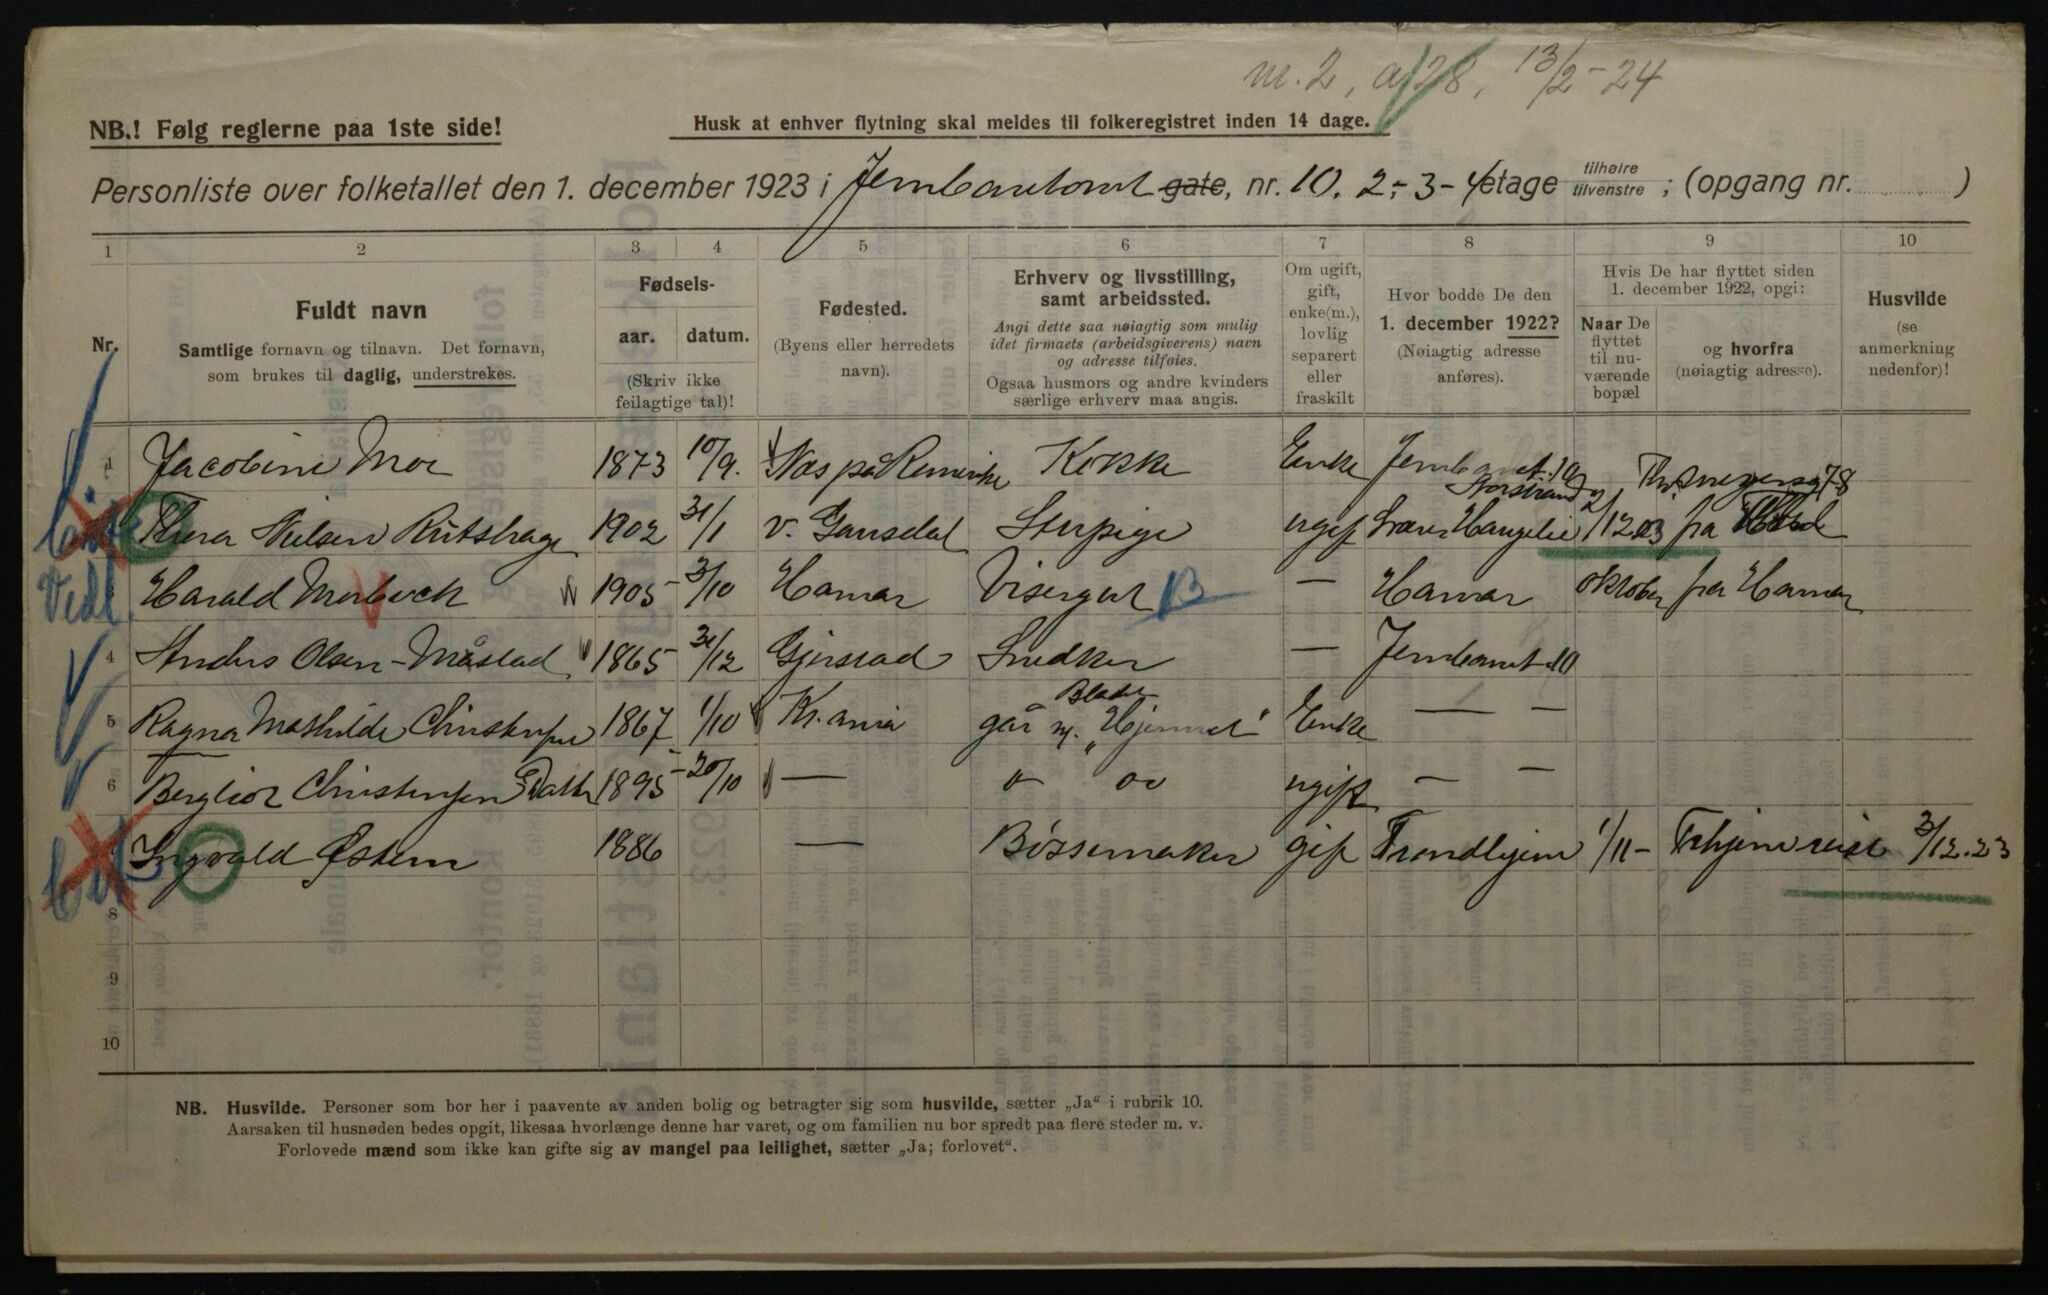 m. 2, a/28, 13/2-24
NB.! Følg reglerne paa 1ste side!
Husk at enhver flytning skal meldes til folkeregistret inden 14 dage.
Personliste over folketallet den 1. december 1923 i Jernbanetorvet gate, nr. 10. 2-3-4 etage tilhøire tilvenstre ; (opgang nr. )
1 2 3 4 5 6 7 8 9 10
Nr.
Fuldt navn
Samtlige fornavn og tilnavn. Det fornavn,
som brukes til daglig, understrekes.
Fødsels-
aar. datum.
(Skriv ikke
feilagtige tal)!
Fødested.
(Byens eller herredets
navn).
Erhverv og livsstilling,
samt arbeidssted.
Angi dette saa nøiagtig som mulig
idet firmaets (arbeidsgiverens) navn
og adresse tilføies.
Ogsaa husmors og andre kvinders
særlige erhverv maa angis.
Om ugift,
gift,
enke(m.),
lovlig
separert
eller
fraskilt
Hvor bodde De den
1. december 1922?
(Nøiagtig adresse
anføres).
Hvis De har flyttet siden
1. december 1922, opgi:
Naar De
flyttet
til nu-
værende
bopæl
og hvorfra
(nøiagtig adresse).
Husvilde
(se
anmerkning
nedenfor)!
1 Jacobine Moe 1873 10/9. Nes på Romerike Kokke Enke Jernbanet. 10
Thora Nielsen 1902 31/1 v. Stupige ugif fra
Vedl. Harald 1905 3/10 Hamar Visergut B — Hamar oktober fra Hamar
4 Anders Olsen-Måstad 1865 31/12 Gjerstad Snedker — Jernbanet. 10
5 Ragna Mathilde Christensen 1867 1/10 Kr.ania går m. Bladet "Hjemmet" Enke — —
6 Bergliot Christensen 1895 20/10 — ugift — —
Ingvald Østern 1886 — Bøssemaker gif Trondhjem 1/11- Trhjem reist 3/12.23
8
9
10
NB. Husvilde. Personer som bor her i paavente av anden bolig og betragter sig som husvilde, sætter „Ja“ i rubrik 10.
Aarsaken til husnøden bedes opgit, likesaa hvorlænge denne har varet, og om familien nu bor spredt paa flere steder m. v.
Forlovede mænd som ikke kan gifte sig av mangel paa leilighet, sætter „Ja; forlovet“.